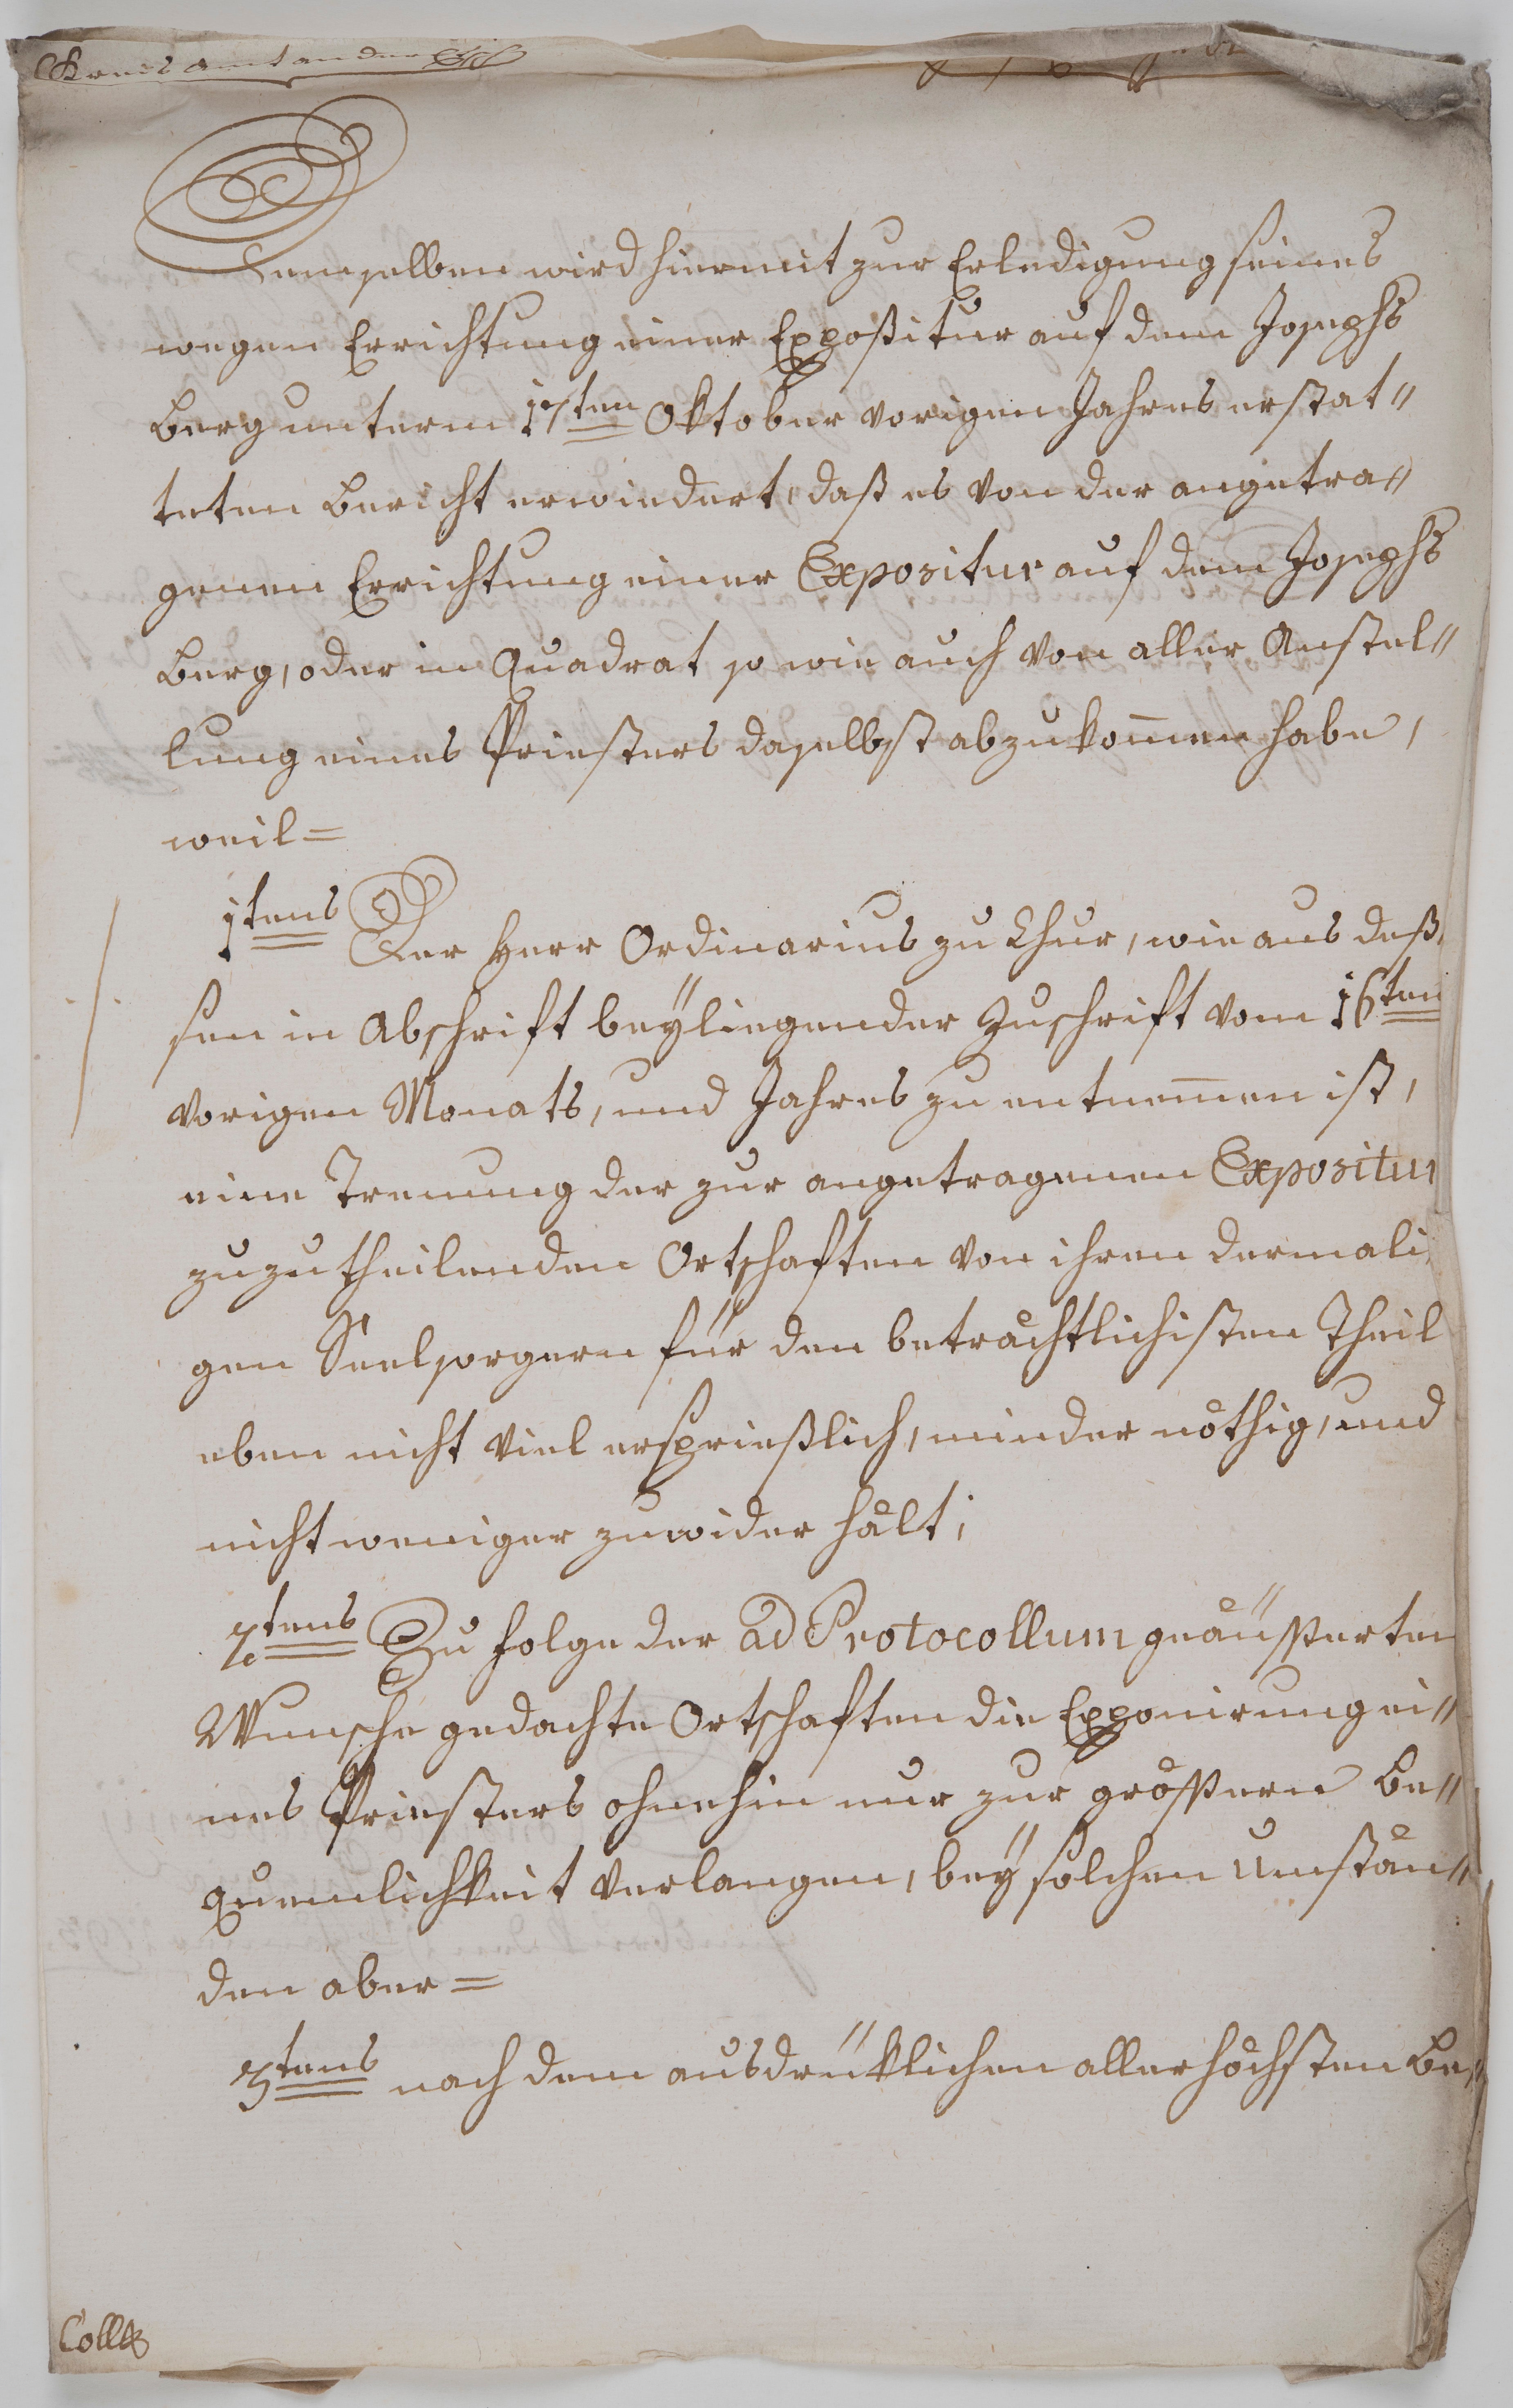 Kreisamt an der Etsch
Demselben wird hiermit zur Erledigung seines
wegen Errichtung einer Expositur auf dem Josephs
Berg unterm 17ten Oktober vorigen Jahres erstat"
teten Bericht erwiedert, daß es von der angetra"
genen Errichtung einer Expositur auf dem Josephs
Berg, oder in Quadrat so wie auch von aller Anstel"
lung eines Priesters daselbst abzukom̄en habe,
weil=
1tens Der Herr Ordinarius zu Chur, wie aus deß,
sen in Abschrift beÿliegender Zuschrift vom 16ten
vorigen Monats, und Jahres zu entnem̄en ist,
eine Trenung der zur angetragenen Expositur
zuzutheilenden Ortschaften von ihren dermali,
gen Seelsorgern für den beträchtlichisten Theil
eben nicht viel ersprießlich, minder nöthig, und
nicht weniger zuwider hält;
2tens Zu folge der ad Protocollum geäüsserten
Wunsche gedachte Ortschaften die Exponirung ei"
nes Priesters ohnehin nur zur grössern Be"
quemlichkeit verlangen, beÿ solchen Umstän"
den aber=
3tens nach dem ausdrüklichen allerhöchsten Be"